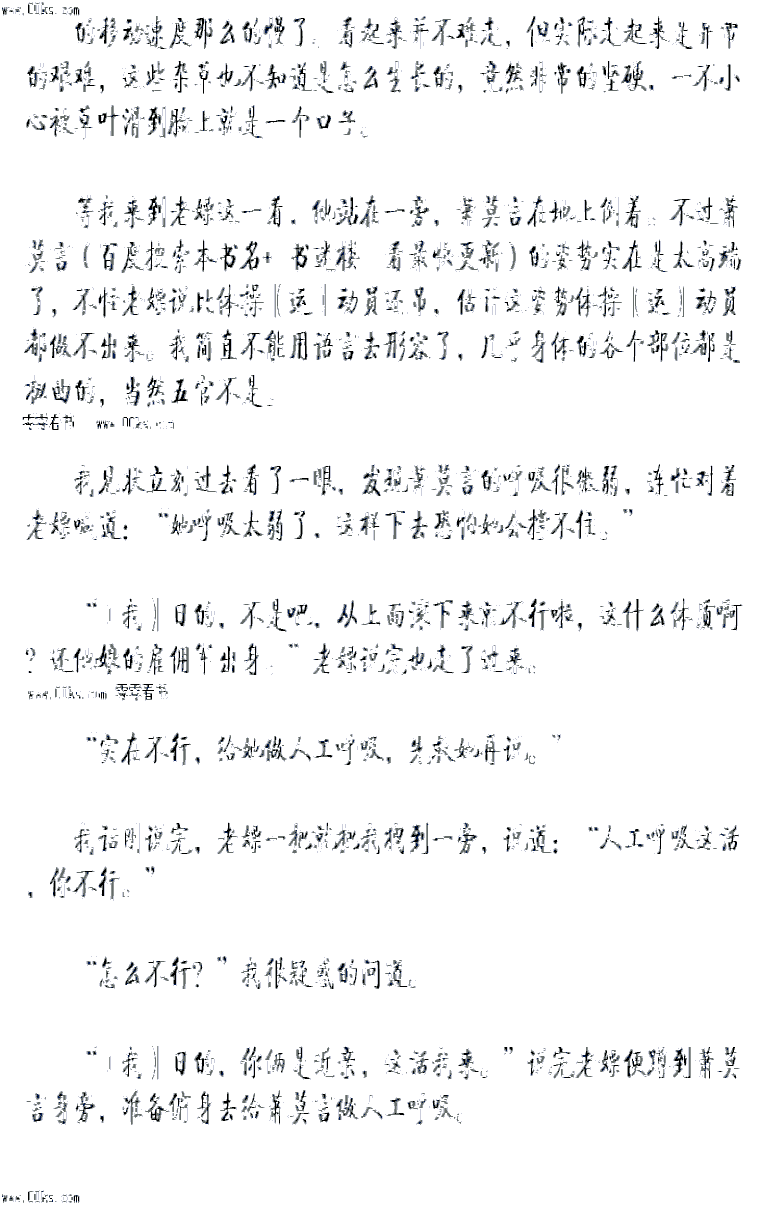 www.00ks.com
的移动速度那么的慢了。看起来并不难走，但实际走起来是非常
的艰难，这些杂草也不知道是怎么生长的，竟然非常的坚硬，一不小
心被草叶滑到脸上就是一个口子。
等我来到老嫖这一看，他站在一旁，萧莫言在地上倒着。不过萧
莫言（百度搜索本书名+ 书迷楼 看最快更新）的姿势实在是太高端
了，不怪老嫖说比体操〖运〗动员还吊，估计这姿势体操〖运〗动员
都做不出来。我简直不能用语言去形容了，几乎身体的各个部位都是
扭曲的，当然五官不是。
零零看书 www.00ks.com
我见状立刻过去看了一眼，发现萧莫言的呼吸很微弱，连忙对着
老嫖喊道：“她呼吸太弱了，这样下去恐怕她会撑不住。”
“〖我〗日的，不是吧，从上面滚下来就不行啦，这什么体质啊
？还他娘的雇佣军出身。”老嫖说完也走了过来。
www.00ks.com 零零看书
“实在不行，给她做人工呼吸，先救她再说。”
我话刚说完，老嫖一把就把我捞到一旁，说道：“人工呼吸这活
，你不行。”
“怎么不行？”我很疑惑的问道。
“〖我〗日的，你俩是近亲，这活我来。”说完老嫖便蹲到萧莫
言身旁，准备俯身去给萧莫言做人工呼吸。
www.00ks.com